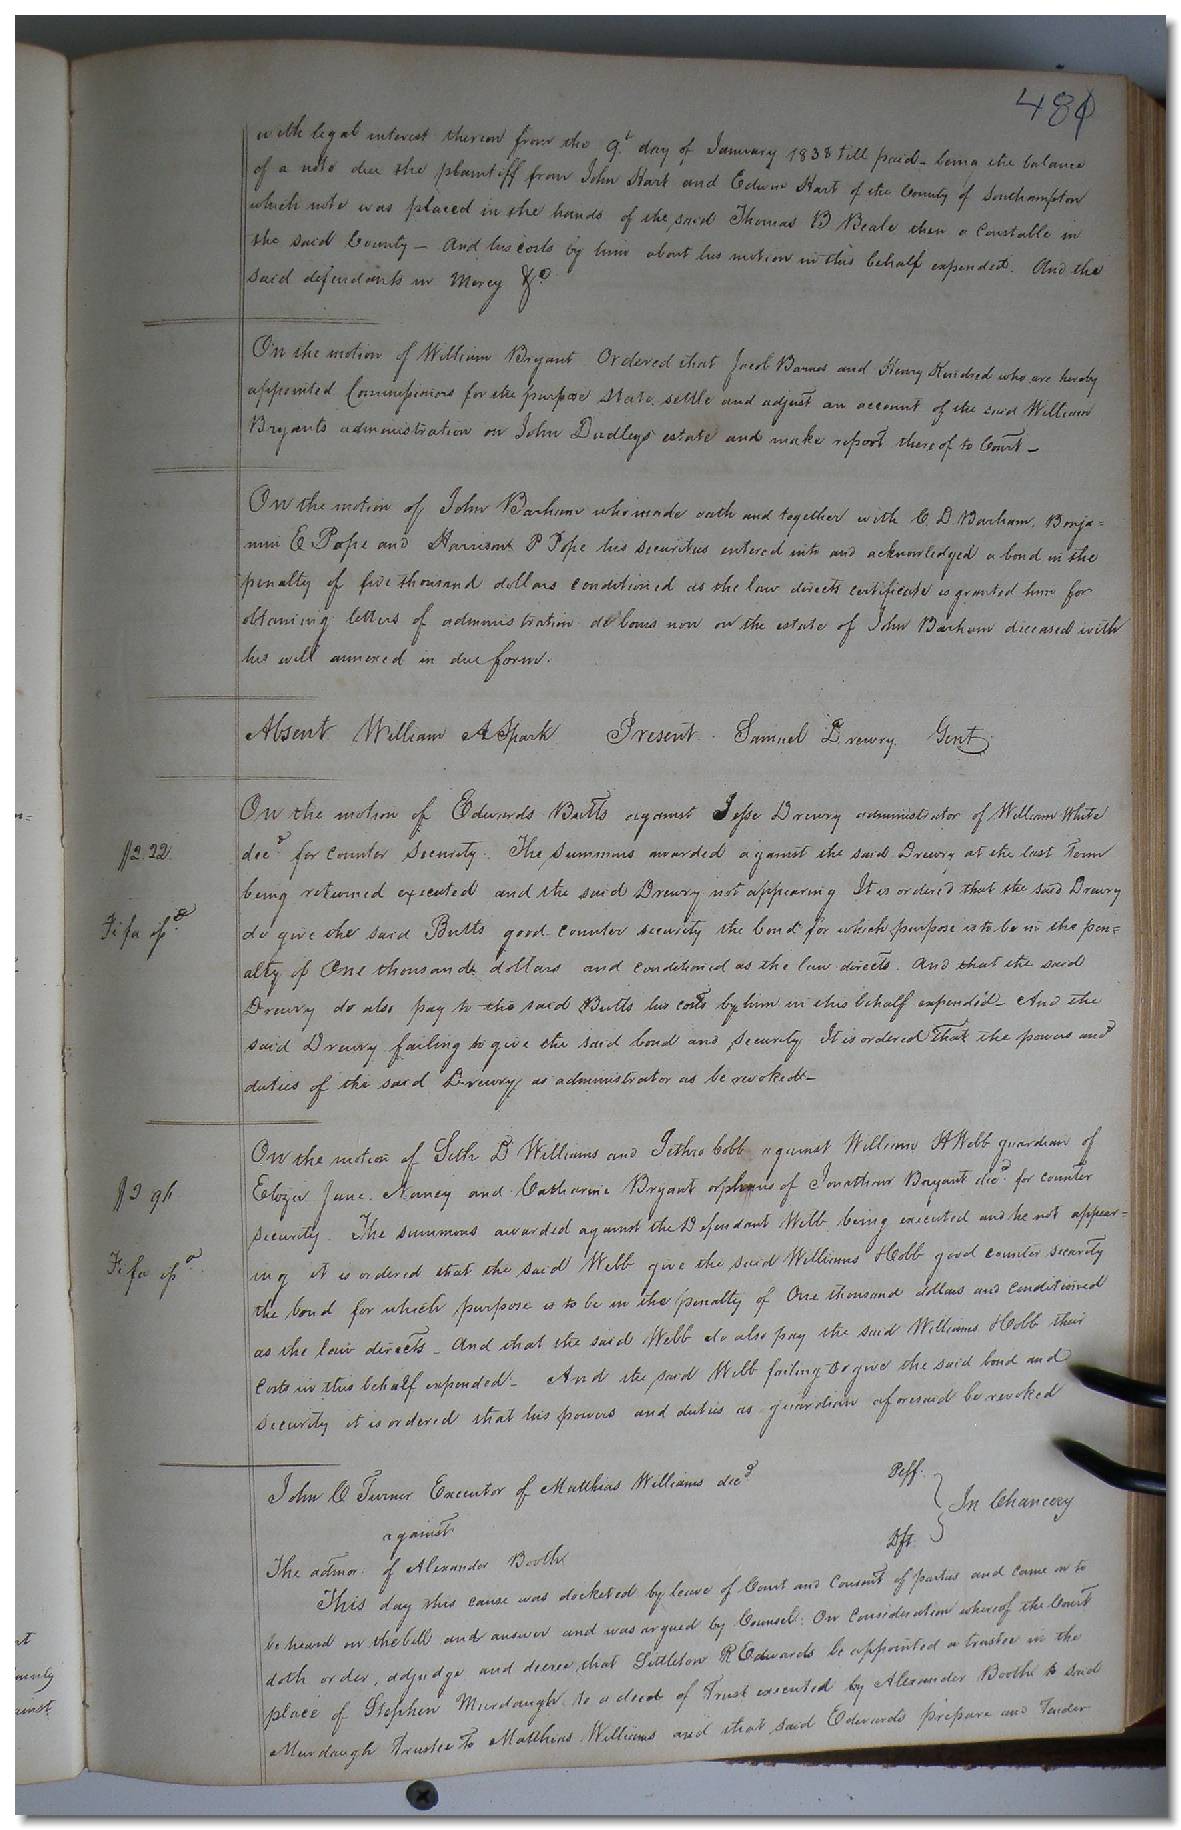 480
with legal interest thereon from the 9th day of January 1838 till paid - being the balance
of a note due the plaintiff from John Hart and Edwin Hart of the County of Southampton
which note was placed in the hands of the said Thomas B Beale then a Constable in
the said County - And his costs by him about his motion in this behalf expended. And the
said defendants in Mercy &c
On the motion of William Bryant Ordered that Jacob Barnes and Henry Kindred who are hereby
appointed Commissioners for the purpose state settle and adjust an account of the said William
Bryants administration on John Dudleys estate and make report thereof to Court -
On the motion of John Barham who made oath and together with C. D Barham, Benja=
min E Pope and Harrison P Pope his securities entered into and acknowledged a bond in the
penalty of five thousand dollars conditioned as the law directs certificate is granted him for
obtaining letters of administration de bonis non on the estate of John Barham deceased with
his will annexed in due form.
Absent William A Spark Present. Samuel Drewry Gent.
On the motion of Edwards Butts against Jesse Drewry administrator of William White
$2.22. decd for counter security. The summons awarded against the said Drewry at the last Term
being returned executed and the said Drewry not appearing It is ordered that the said Drewry
Fi fa isd. do give the said Butts good counter security the bond for which purpose is to be in the pen=
alty of One thousand dollars and conditioned as the law directs. And that the said
Drewry do also pay to the said Butts his costs by him in this behalf expended - And the
said Drewry failing to give the said bond and security It is ordered that the powers and
duties of the said Drewry as administrator as be revoked -
On the motion of Seth D Williams and Jethro Cobb against William H Webb guardian of
$2 96 Eliza Jane, Nancy and Catharine Bryant orphans of Jonathan Bryant decd. for counter
security. The summons awarded against the Defendant Webb being executed and he not appear=
Fi fa isd. ing it is ordered that the said Webb give the said Williams & Cobb good counter security
the bond for which purpose is to be in the penalty of One thousand dollars and conditioned
as the law directs - And that the said Webb do also pay the said Williams & Cobb their
costs in this behalf expended - And the said Webb failing to give the said bond and
security it is ordered that his powers and duties as guardian aforesaid be revoked
John C Turner Executor of Matthias Williams decd Plff.
against In Chancery
The admor. of Alexander Booth Dft.
This day this cause was docketed by leave of Court and consent of parties and came on to
be heard on the bill and answer and was argued by Counsel: On consideration whereof the Court
doth order, adjudge and decree, that Littleton R Edwards be appointed a trustee in the
place of Stephen Murdaugh to a deed of Trust executed by Alexander Booth to said
Murdaugh Trustee to Matthias Williams and that said Edwards prepare and tender